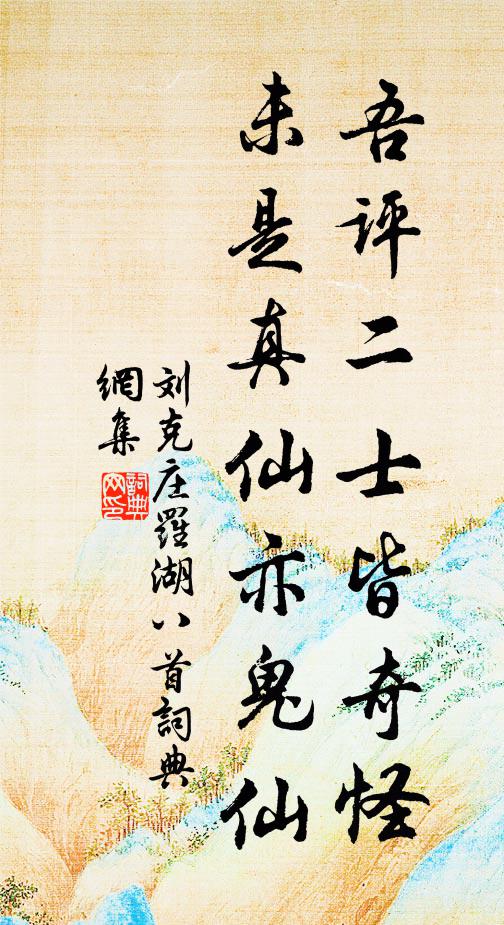 吾评二士皆奇怪
未是真仙亦鬼仙
刘克庄羅湖八首詞典
網集
詞典
网印